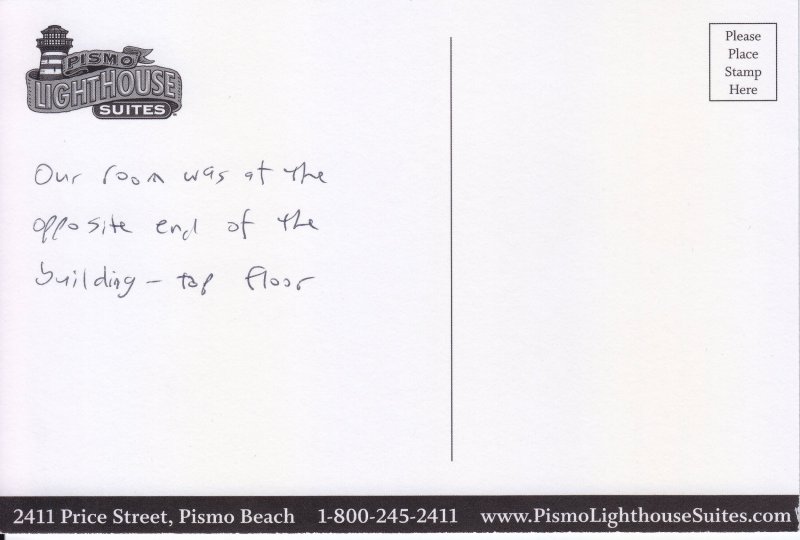 PISMO
LIGHTHOUSE
SUITES
Please
Place
Stamp
Here
Our room was at the
opposite end of the
building - top floor
2411 Price Street, Pismo Beach 1-800-245-2411 www.PismoLighthouseSuites.com